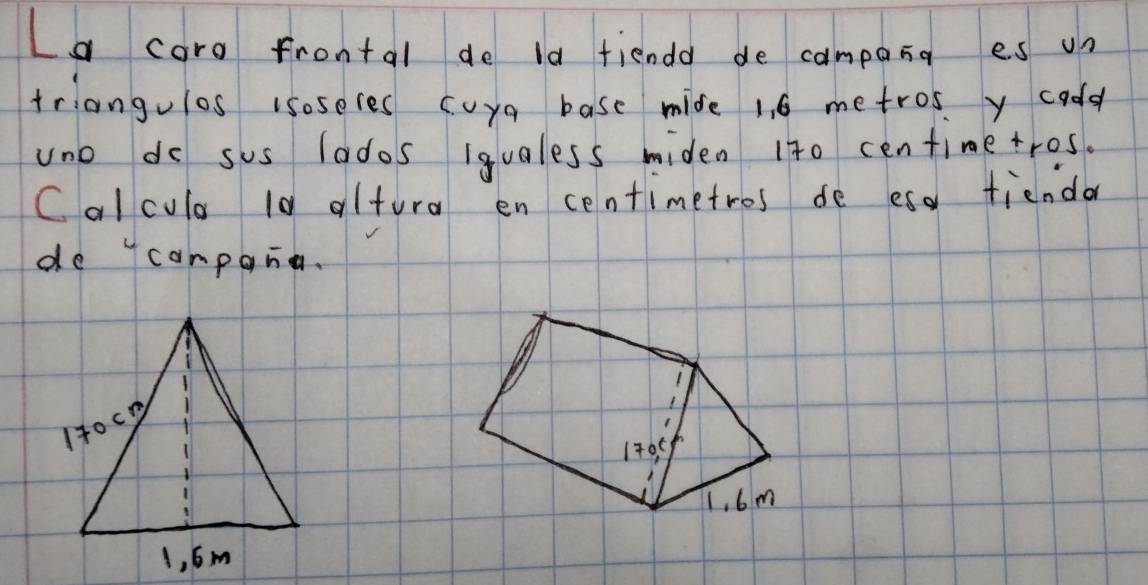 La cara frontal de la tienda de campaña es un
triangulos isoseles cuya base mide 1,6 metros y cada
uno de sus lados igualess miden 170 centimetros.
Calcula la altura en centimetros de esa tienda
de campaña.
170cm
170cm
1,6m
1,6m